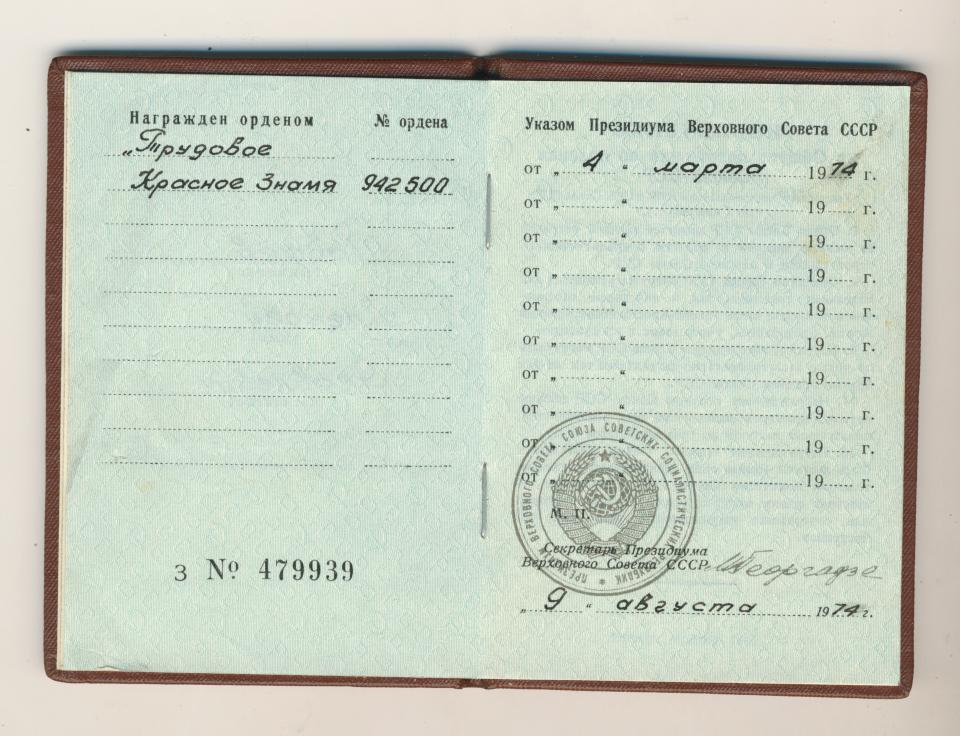 Награжден орденом № ордена
„Трудовое
Красное Знамя 942500
З № 479939
Указом Президиума Верховного Совета СССР
от „ 4 “ марта 1974 г.
от „ “ 19 г.
от „ “ 19 г.
от „ “ 19 г.
от „ “ 19 г.
от „ “ 19 г.
от „ “ 19 г.
от „ “ 19 г.
от „ “ 19 г.
от „ “ 19 г.
ПРЕЗИДИУМ ВЕРХОВНОГО СОВЕТА СОЮЗА СОВЕТСКИХ СОЦИАЛИСТИЧЕСКИХ РЕСПУБЛИК
М. П.
Секретарь Президиума
Верховного Совета СССР МГеоргадзе
„ 9 “ августа 1974 г.